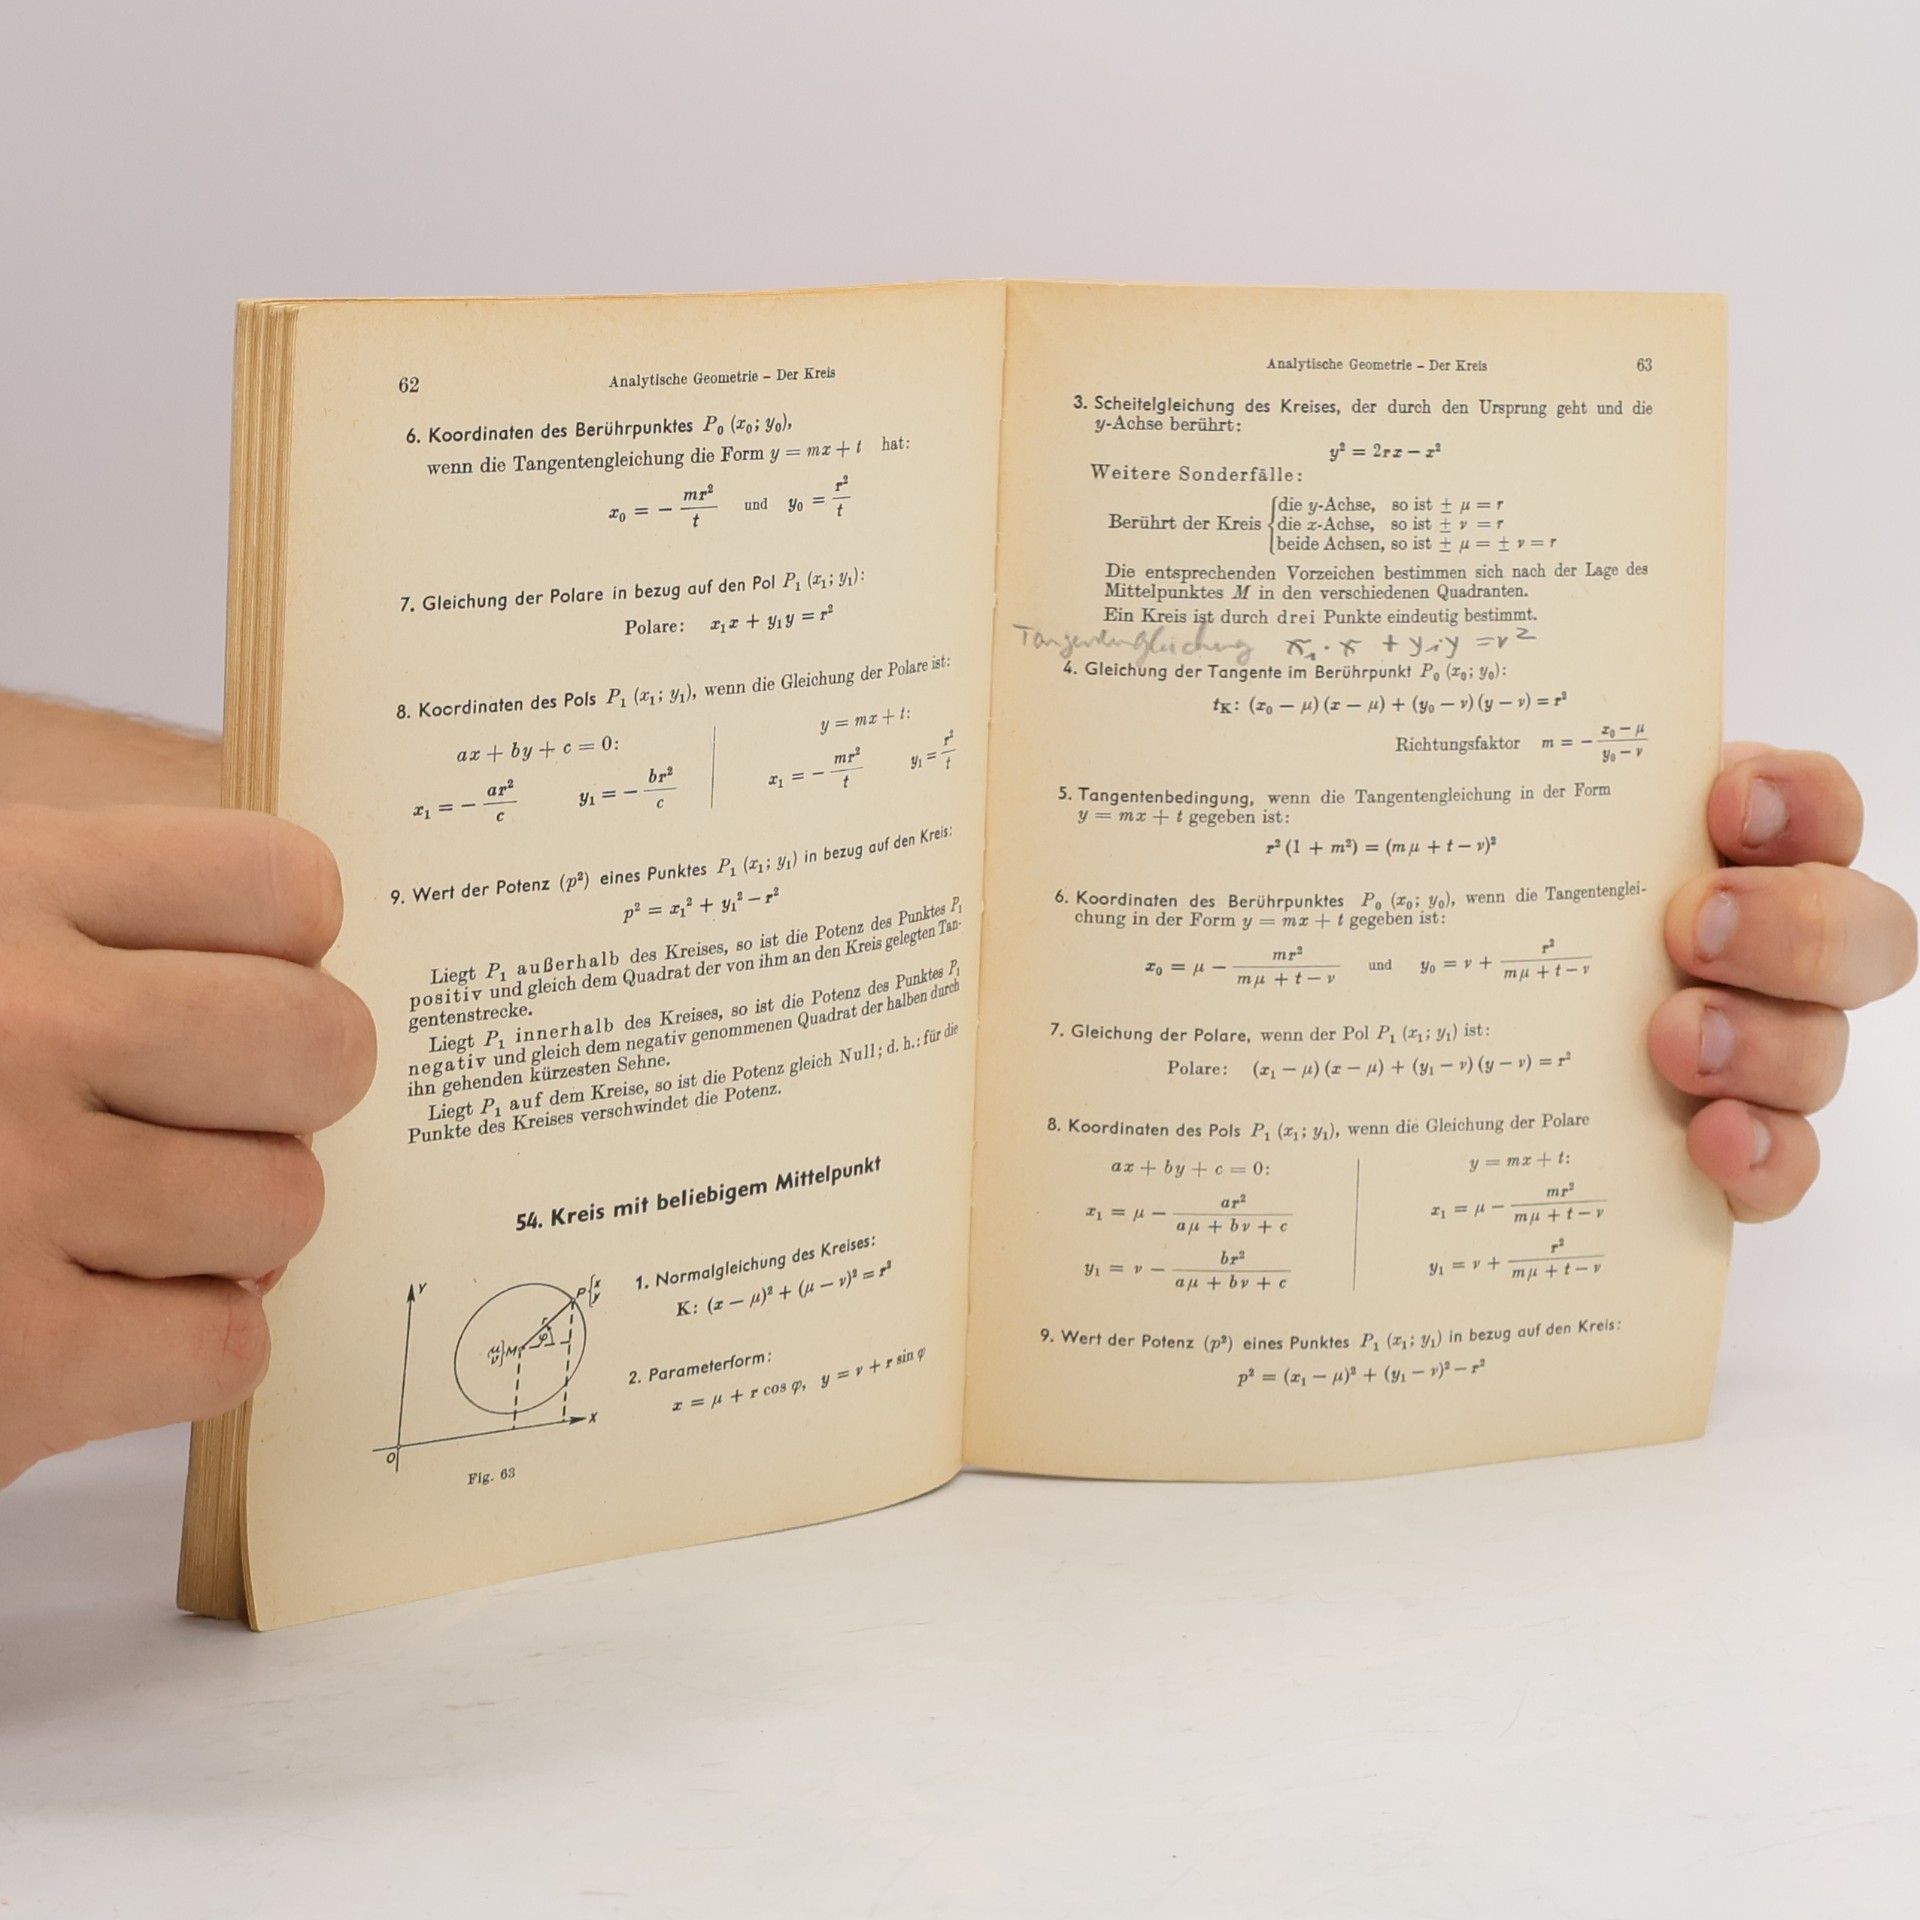 62
Analytische Geometrie – Der Kreis
6. Koordinaten des Berührpunktes P₀ (x₀; y₀),
wenn die Tangentengleichung die Form y = mx + t hat:
x₀ = − mr²/t und y₀ = r²/t
7. Gleichung der Polare in bezug auf den Pol P₁ (x₁; y₁):
Polare: x₁x + y₁y = r²
8. Koordinaten des Pols P₁ (x₁; y₁), wenn die Gleichung der Polare ist:
ax + by + c = 0:
y = mx + t:
x₁ = − ar²/c y₁ = − br²/c
x₁ = − mr²/t y₁ = r²/t
9. Wert der Potenz (p²) eines Punktes P₁ (x₁; y₁) in bezug auf den Kreis:
p² = x₁² + y₁² − r²
Liegt P₁ außerhalb des Kreises, so ist die Potenz des Punktes P₁
positiv und gleich dem Quadrat der von ihm an den Kreis gelegten Tan-
gentenstrecke.
Liegt P₁ innerhalb des Kreises, so ist die Potenz des Punktes P₁
negativ und gleich dem negativ genommenen Quadrat der halben durch
ihn gehenden kürzesten Sehne.
Liegt P₁ auf dem Kreise, so ist die Potenz gleich Null; d. h.: für die
Punkte des Kreises verschwindet die Potenz.
54. Kreis mit beliebigem Mittelpunkt
Y
P{x y
r
μ ν}M
φ
X
O
Fig. 63
1. Normalgleichung des Kreises:
K: (x − μ)² + (μ − ν)² = r²
2. Parameterform:
x = μ + r cos φ, y = ν + r sin φ
Analytische Geometrie – Der Kreis
63
3. Scheitelgleichung des Kreises, der durch den Ursprung geht und die
y-Achse berührt:
y² = 2rx − x²
Weitere Sonderfälle:
die y-Achse, so ist ± μ = r
Berührt der Kreis { die x-Achse, so ist ± ν = r
beide Achsen, so ist ± μ = ± ν = r
Die entsprechenden Vorzeichen bestimmen sich nach der Lage des
Mittelpunktes M in den verschiedenen Quadranten.
Ein Kreis ist durch drei Punkte eindeutig bestimmt.
Tangentengleichung x₁·x + y₁·y = r²
4. Gleichung der Tangente im Berührpunkt P₀ (x₀; y₀):
tK: (x₀ − μ) (x − μ) + (y₀ − ν) (y − ν) = r²
Richtungsfaktor m = − (x₀ − μ)/(y₀ − ν)
5. Tangentenbedingung, wenn die Tangentengleichung in der Form
y = mx + t gegeben ist:
r² (1 + m²) = (mμ + t − ν)²
6. Koordinaten des Berührpunktes P₀ (x₀; y₀), wenn die Tangentenglei-
chung in der Form y = mx + t gegeben ist:
x₀ = μ − mr²/(mμ + t − ν) und y₀ = ν + r²/(mμ + t − ν)
7. Gleichung der Polare, wenn der Pol P₁ (x₁; y₁) ist:
Polare: (x₁ − μ) (x − μ) + (y₁ − ν) (y − ν) = r²
8. Koordinaten des Pols P₁ (x₁; y₁), wenn die Gleichung der Polare
ax + by + c = 0:
y = mx + t:
x₁ = μ − ar²/(aμ + bν + c)
x₁ = μ − mr²/(mμ + t − ν)
y₁ = ν − br²/(aμ + bν + c)
y₁ = ν + r²/(mμ + t − ν)
9. Wert der Potenz (p²) eines Punktes P₁ (x₁; y₁) in bezug auf den Kreis:
p² = (x₁ − μ)² + (y₁ − ν)² − r²